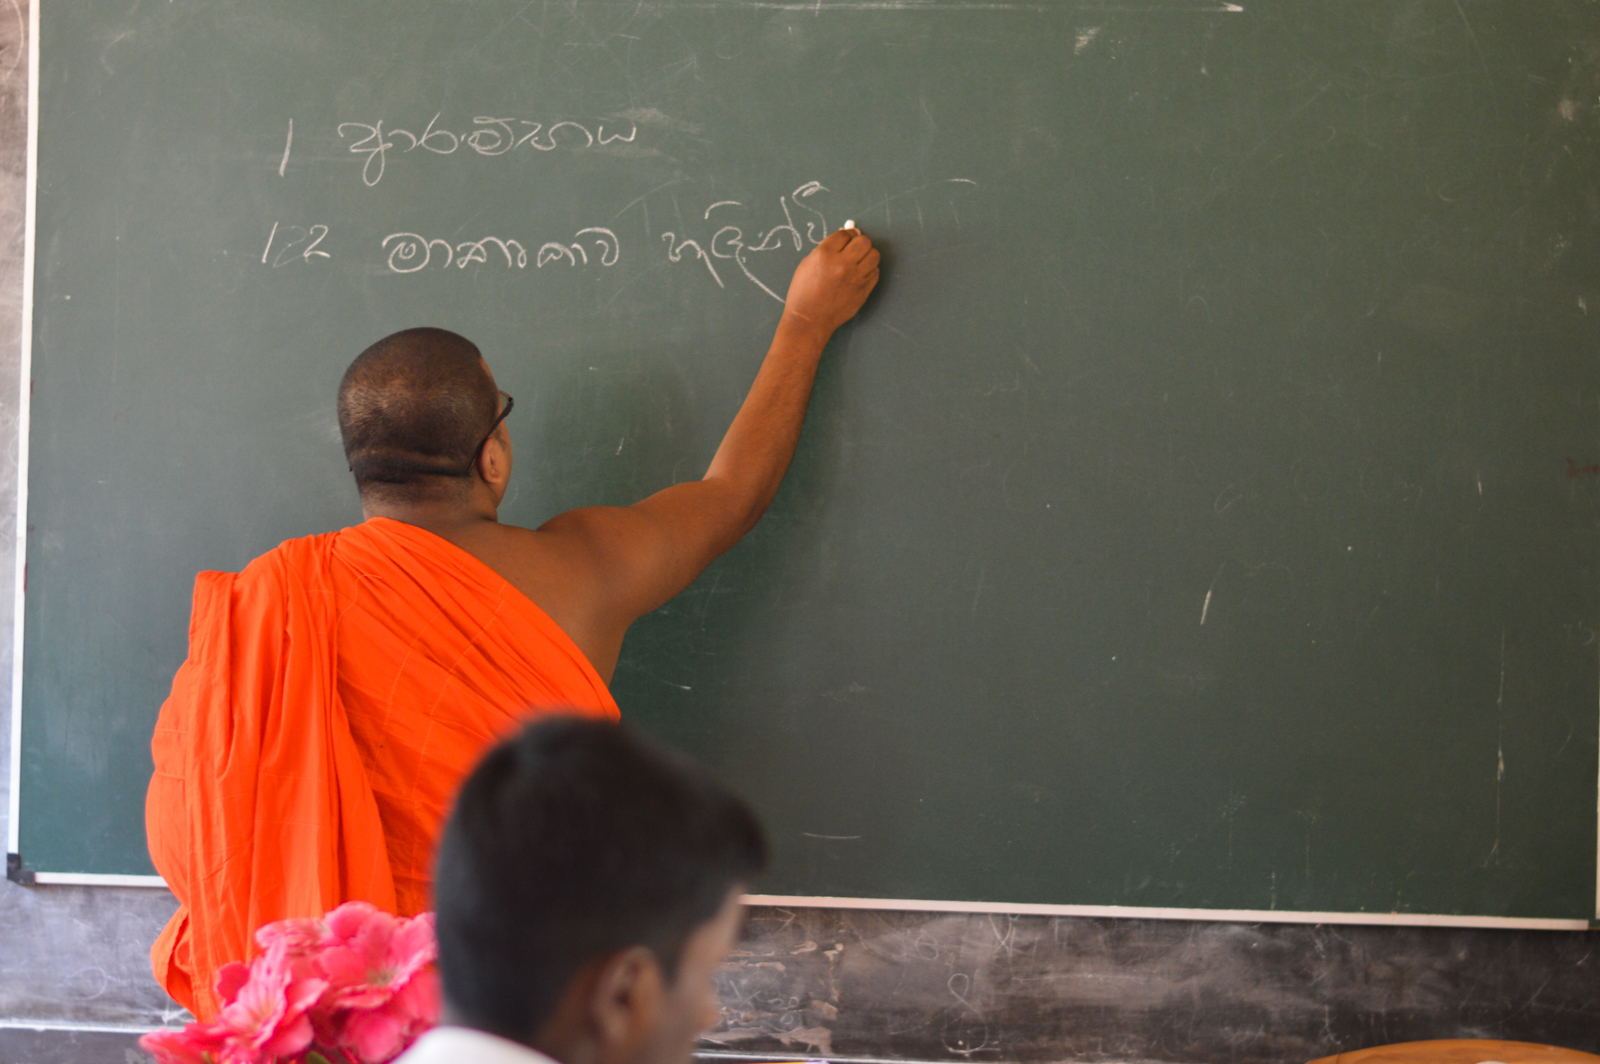 1 ආරම්භය
1.2 මාතෘකාව හැඳින්වී